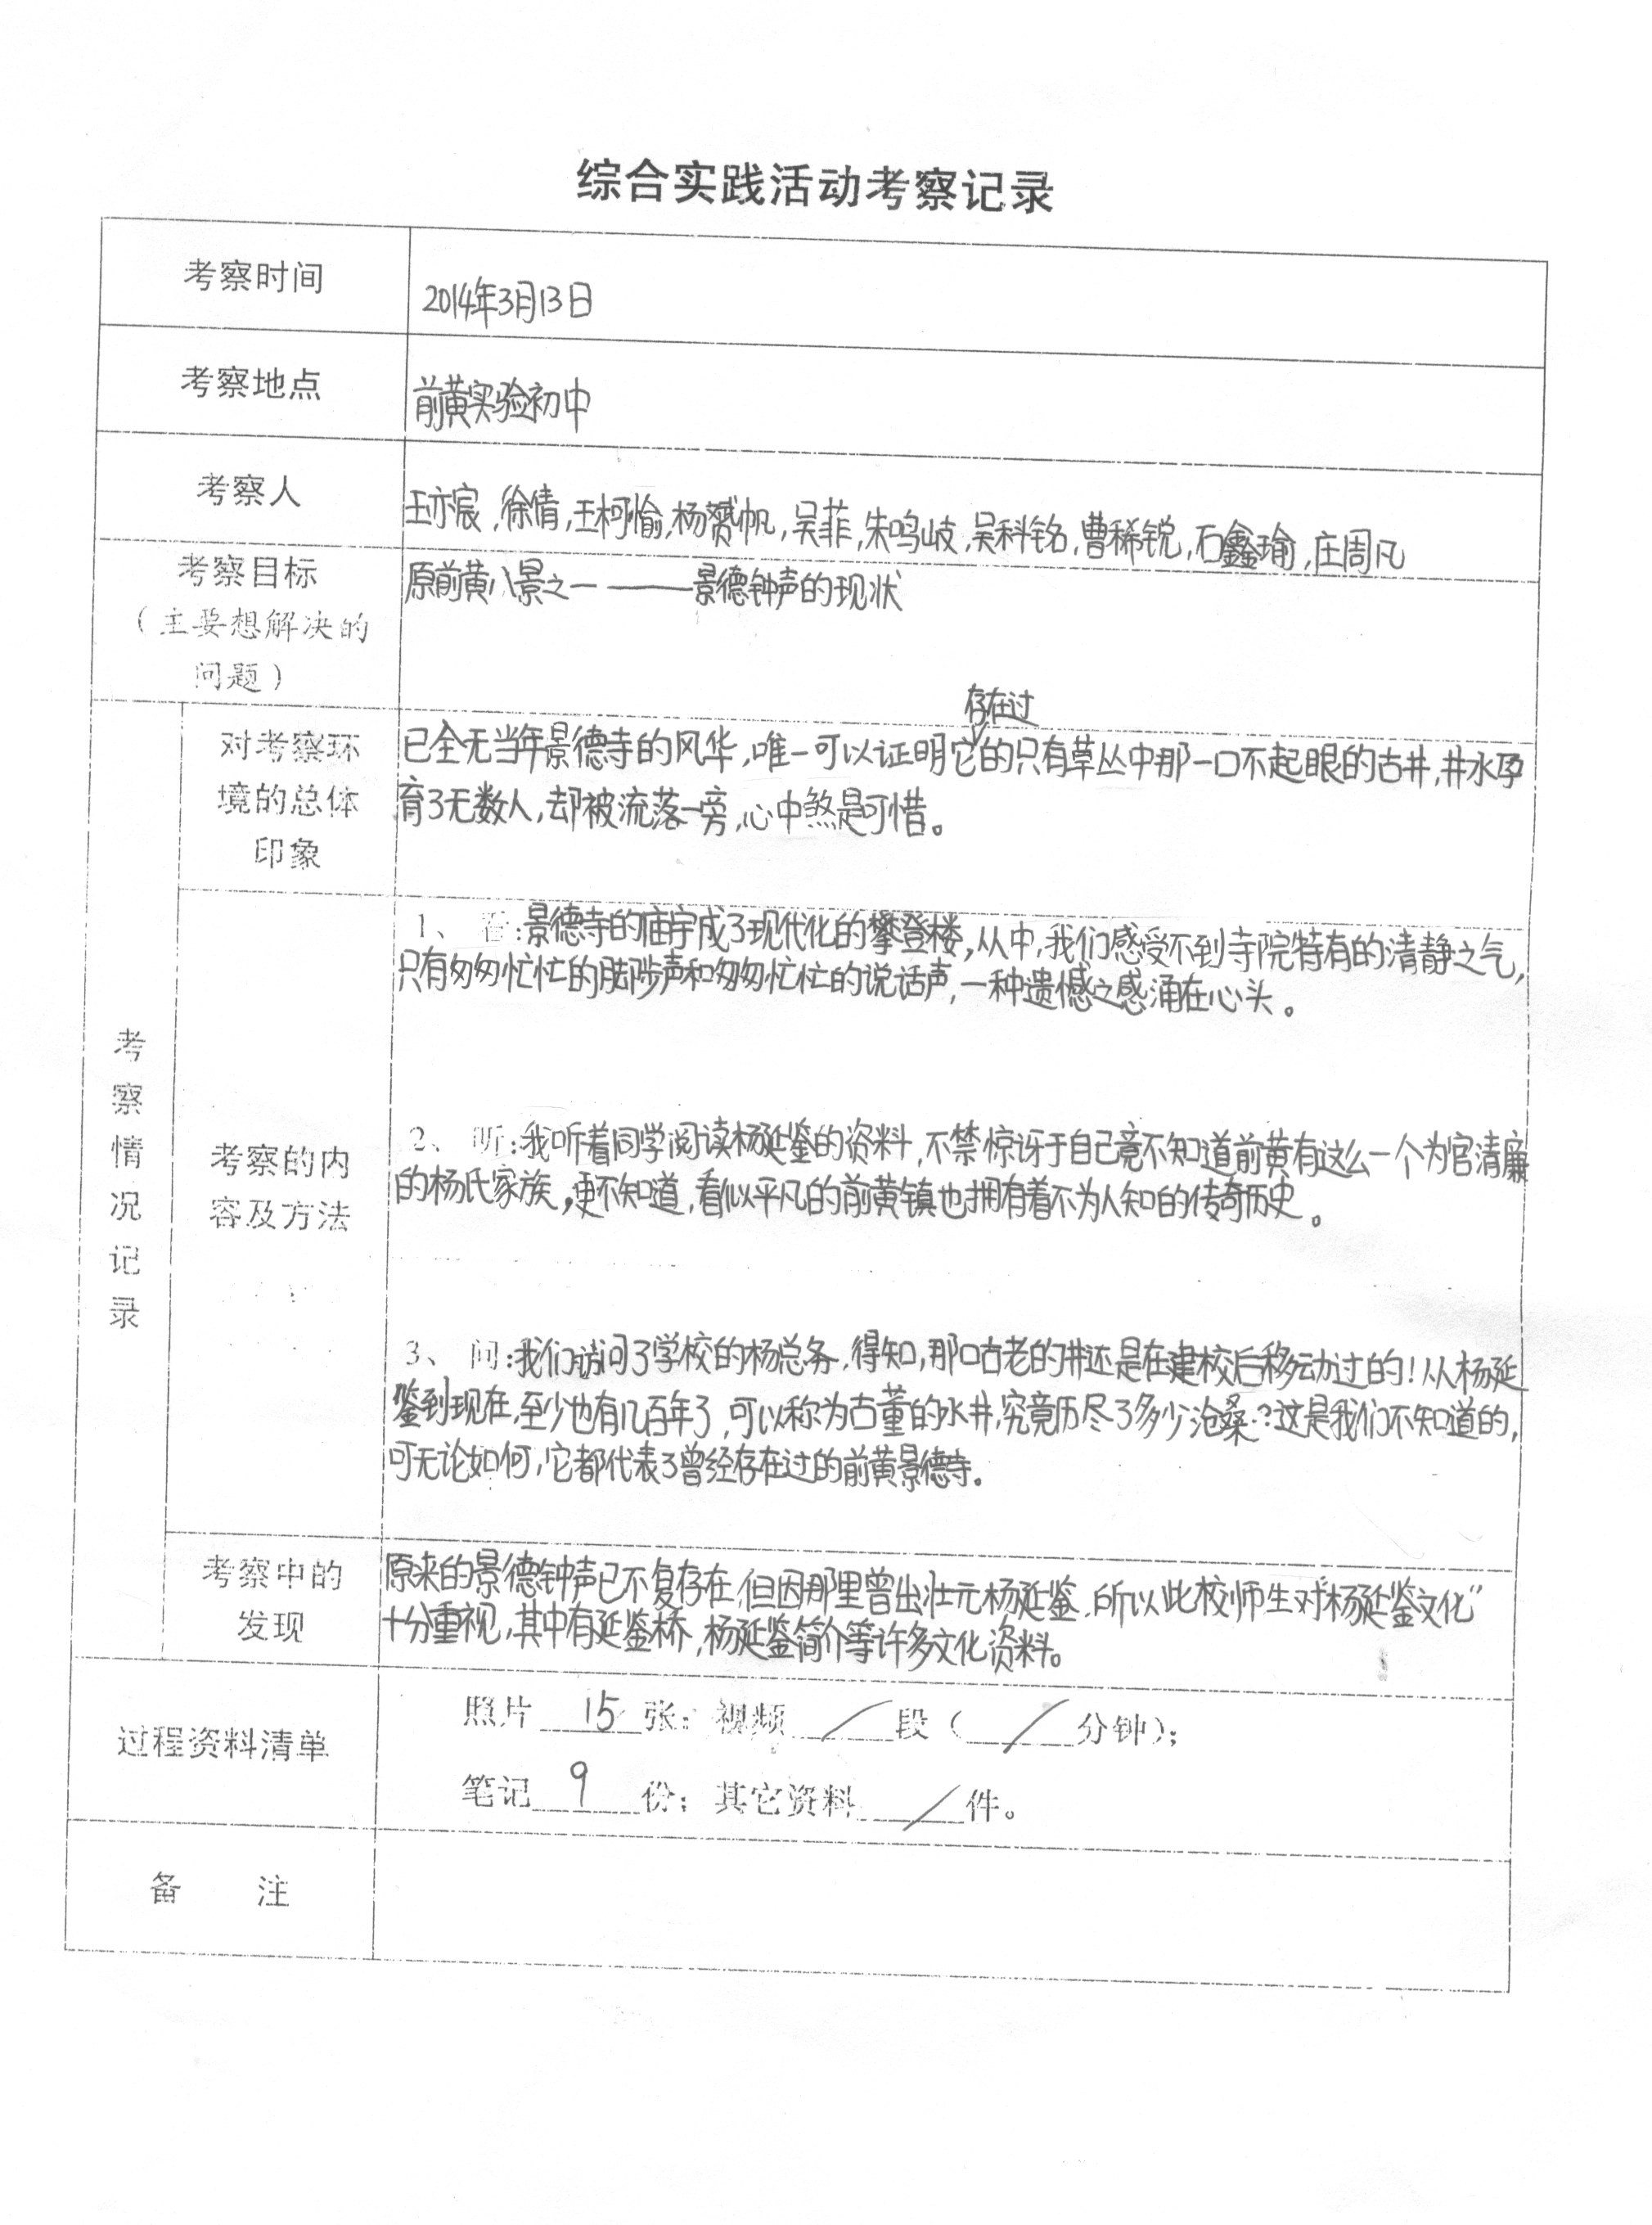 综合实践活动考察记录
考察时间
2014年3月13日
考察地点
前黄实验初中
考察人
王亦宸,徐倩,王柯愉,杨赟帆,吴菲,朱鸣岐,吴科铭,曹稀锐,石鑫瑜,庄周凡
考察目标
(主要想解决的
问题)
原前黄八景之一——景德钟声的现状
考察情况记录
对考察环
境的总体
印象
存在过
已全无当年景德寺的风华,唯一可以证明它的只有草丛中那一口不起眼的古井,井水孕
育了无数人,却被流落一旁,心中煞是可惜。
考察的内
容及方法
1、看:景德寺的庙宇成了现代化的攀登楼,从中,我们感受不到寺院特有的清静之气,
只有匆匆忙忙的脚步声和匆匆忙忙的说话声,一种遗憾之感涌在心头。
2、听:我听着同学阅读杨延鉴的资料,不禁惊讶于自己竟不知道前黄有这么一个为官清廉
的杨氏家族,更不知道,看似平凡的前黄镇也拥有着不为人知的传奇历史。
3、问:我们访问了学校的杨总务,得知,那口古老的井还是在建校后移动过的!从杨延
鉴到现在,至少也有几百年了,可以称为古董的水井,究竟历尽了多少沧桑?这是我们不知道的,
可无论如何,它都代表了曾经存在过的前黄景德寺。
考察中的
发现
原来的景德钟声已不复存在,但因那里曾出壮元杨延鉴,所以此校师生对“杨延鉴文化”
十分重视,其中有延鉴桥,杨延鉴简介等许多文化资料。
过程资料清单
照片 15 张;视频 / 段( / 分钟);
笔记 9 份;其它资料 / 件。
备 注